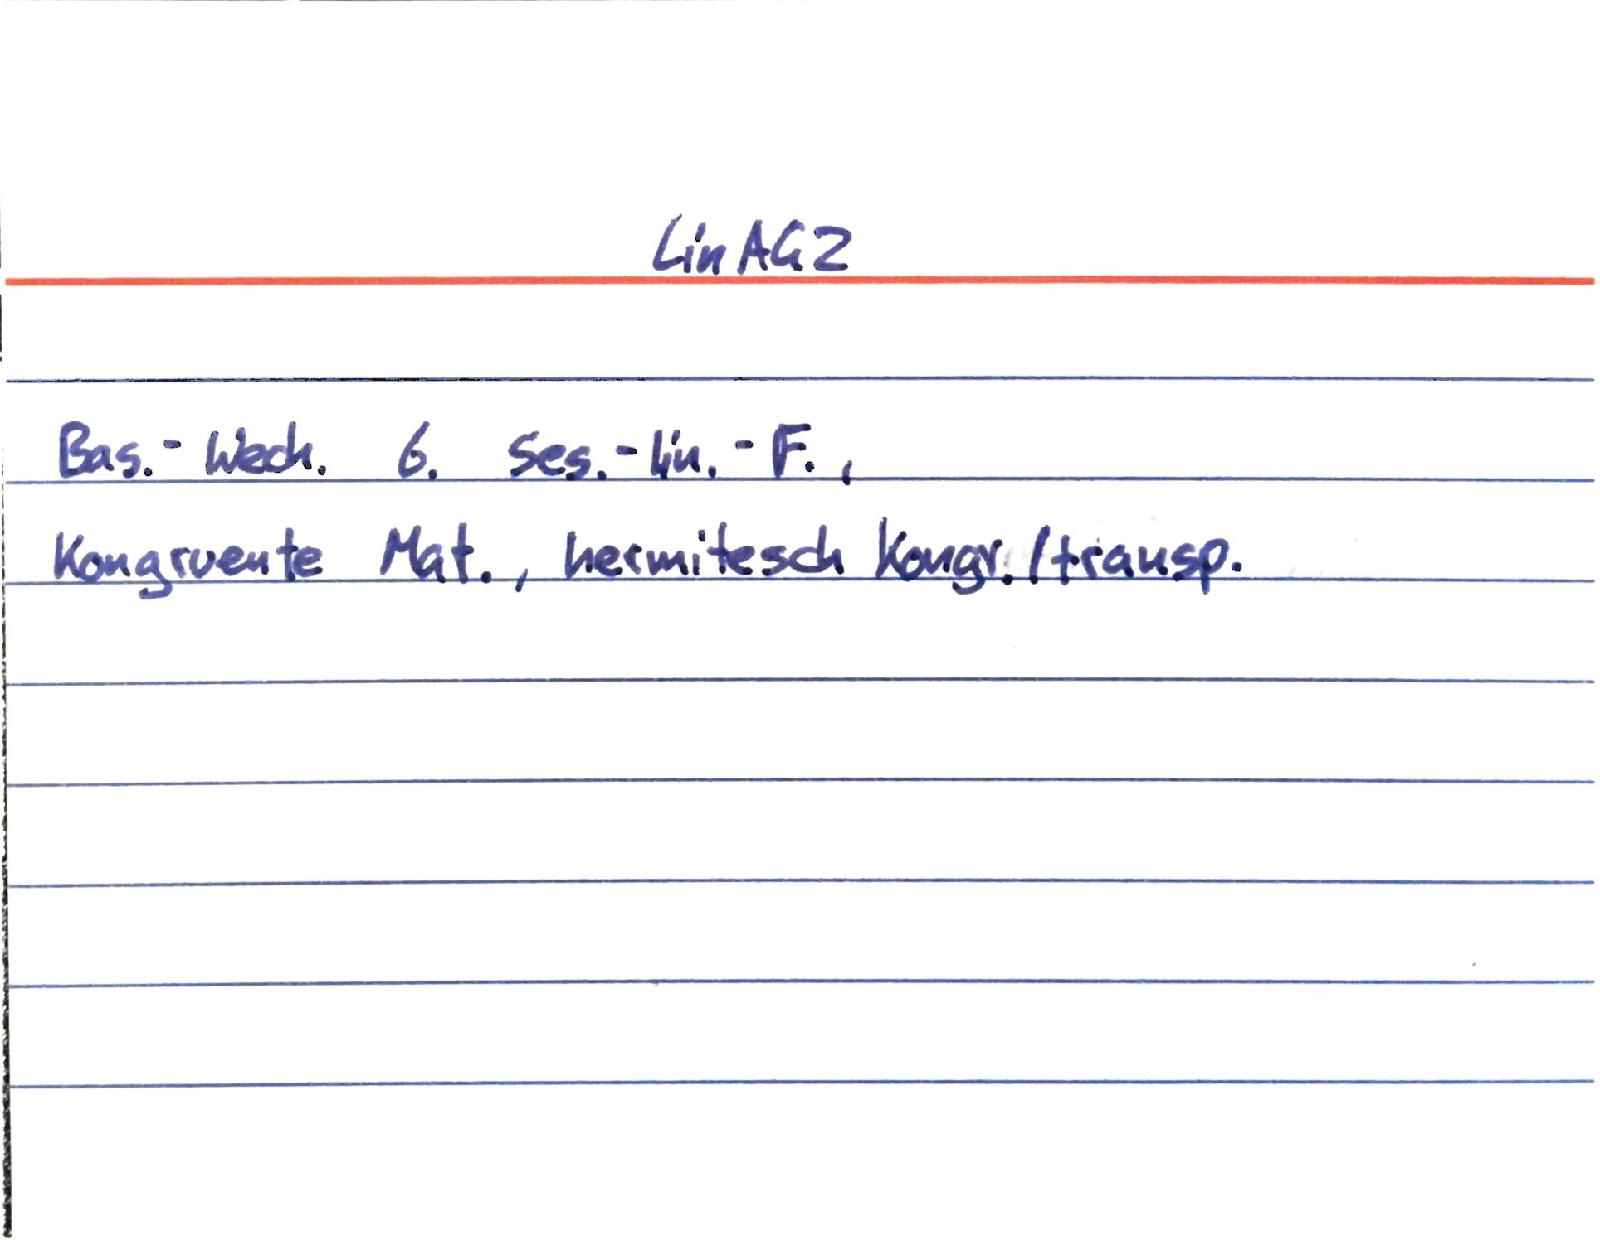 LinAG2
Bas.-Wech. b. Ses.-lin.-F.,
Kongruente Mat., hermitesch kongr./transp.